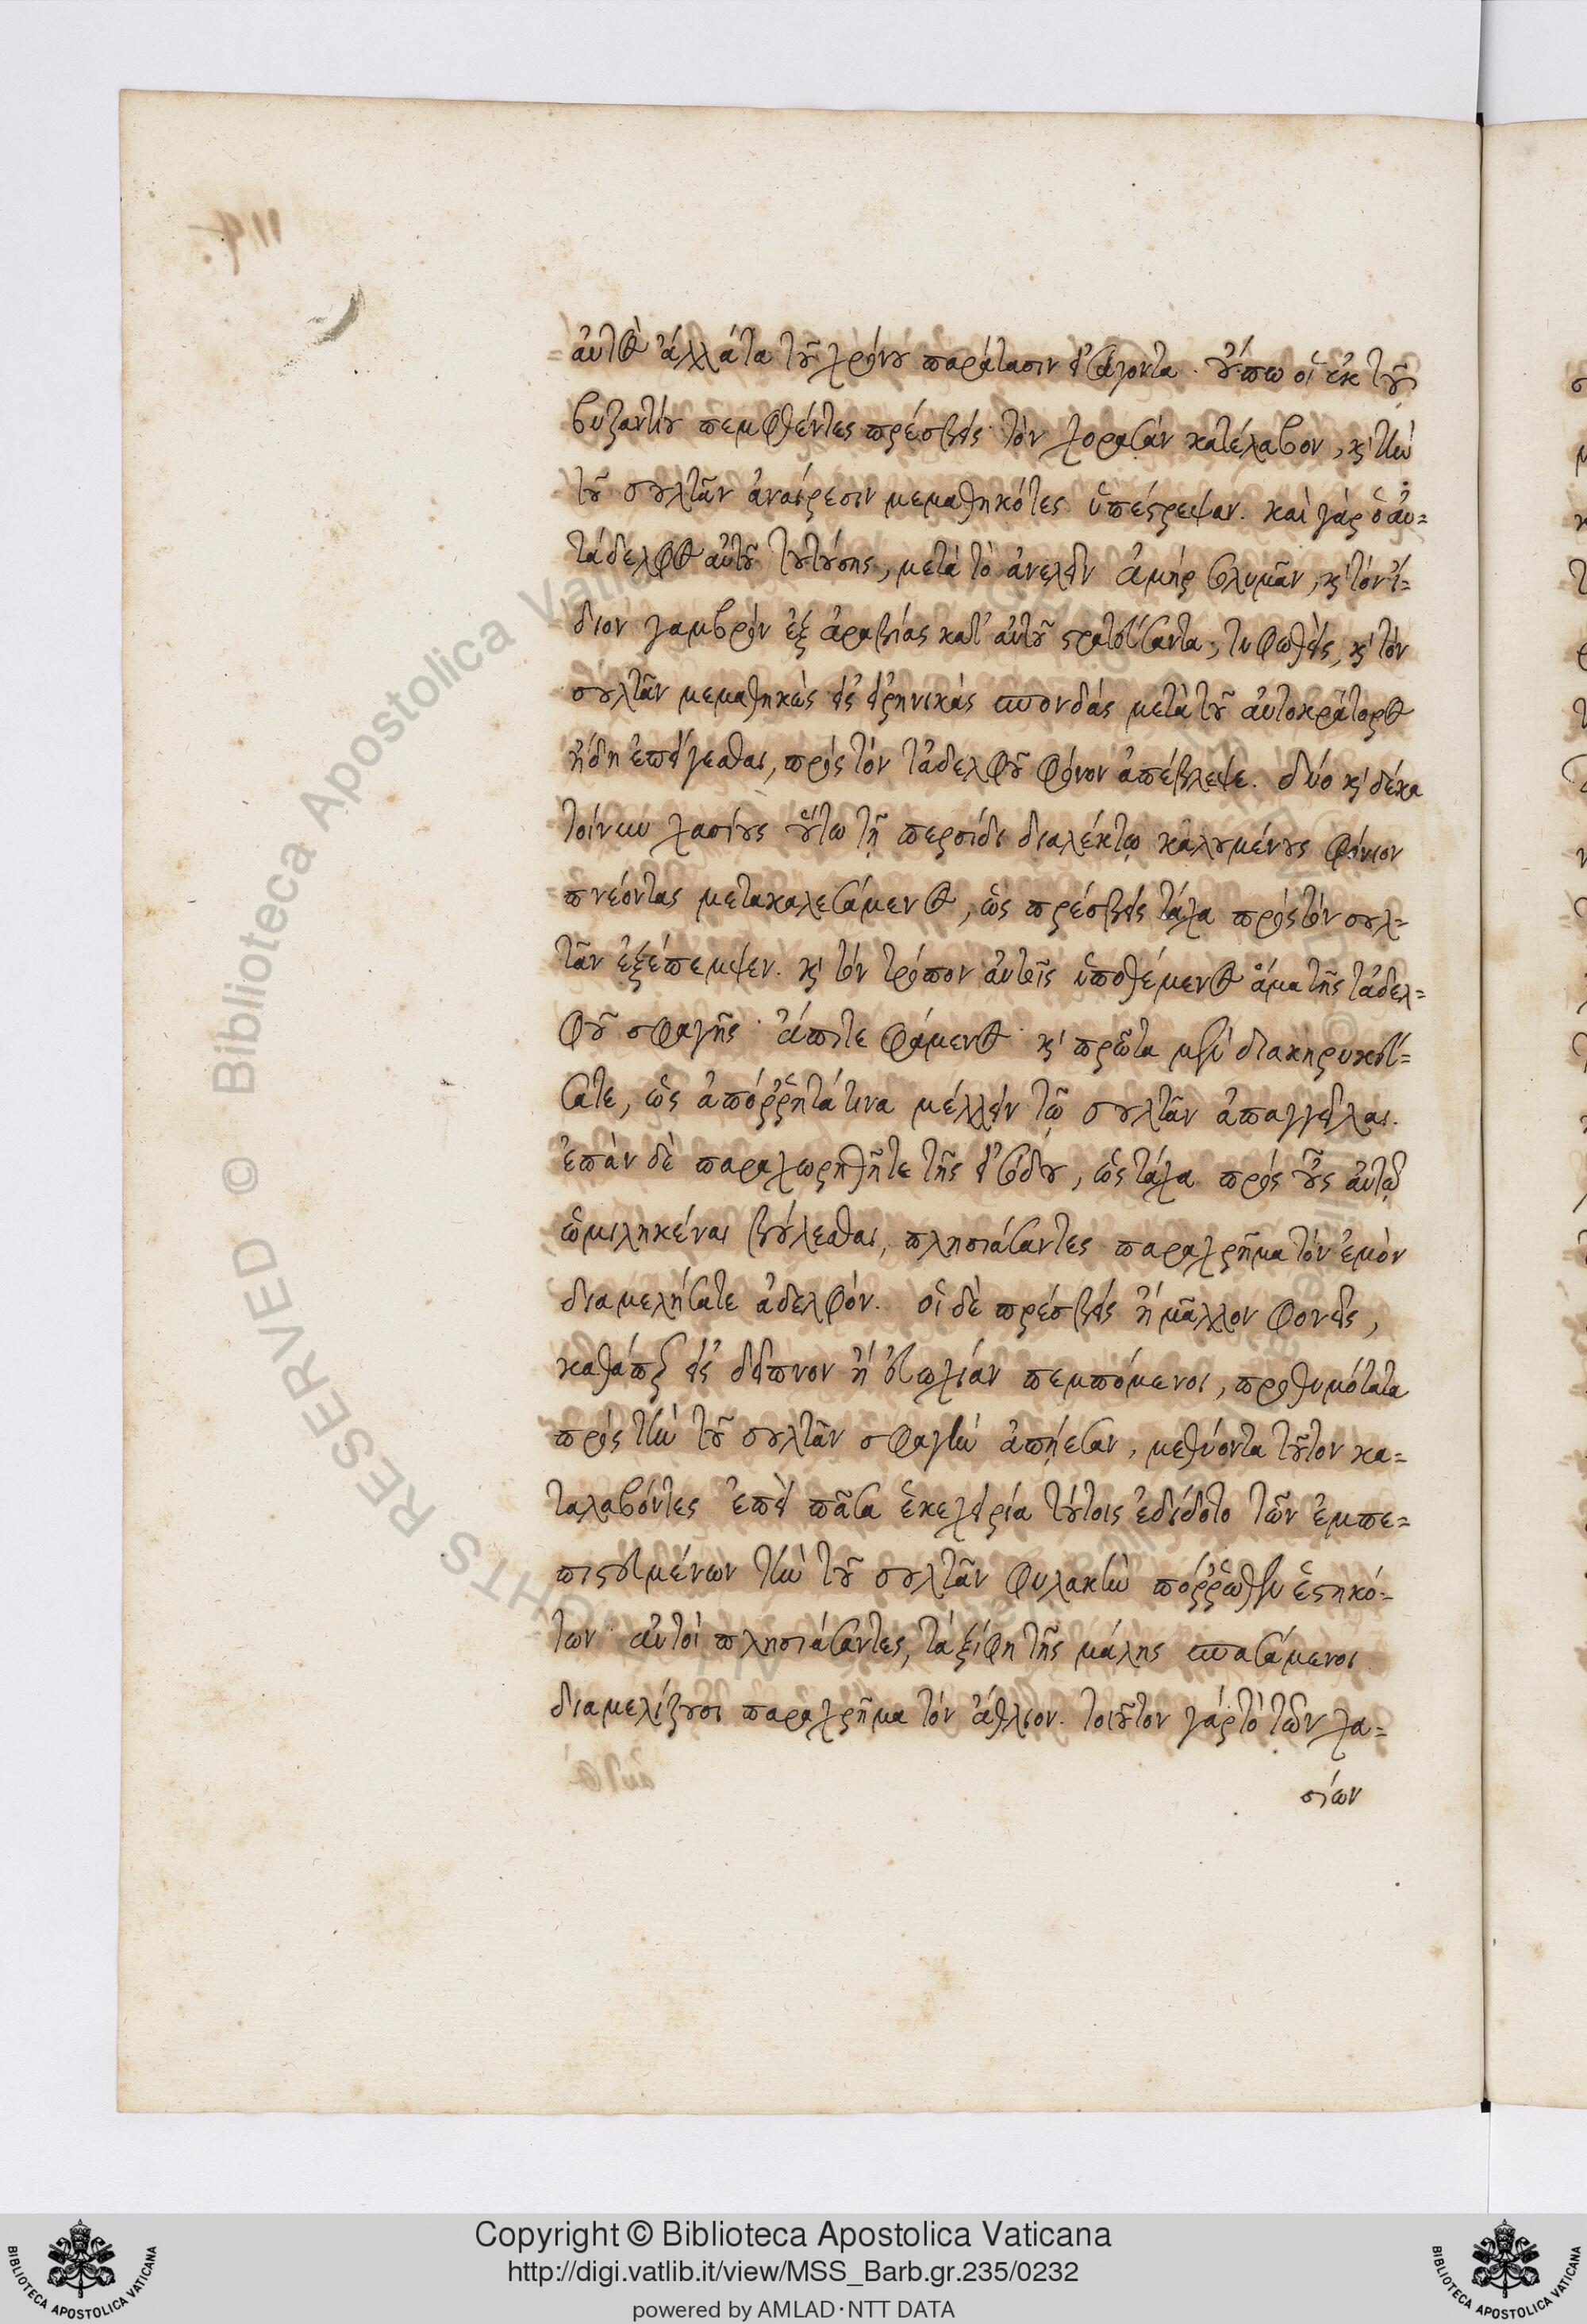 αὐτὸς ἀλλὰ τὰ τοῦ χρόνου παράτασιν εἰσάγοντα. οὔπω οἱ ἐκ τοῦ
βυζαντίου πεμφθέντες πρέσβεις τὸν χορασὰν κατέλαβον, καὶ τὴν
τοῦ σουλτᾶν ἀναίρεσιν μεμαθηκότες ὑπέστρεψαν. καὶ γὰρ ὁ αὐ=
τάδελφος αὐτοῦ τουτούσης, μετὰ τὸ ἀνελεῖν ἀμὴρ σολυμᾶν, καὶ τὸν ἴ=
διον γαμβρὸν ἐξ ἀραβίας κατ' αὐτοῦ στρατεύσαντα, τυφωθεὶς, καὶ τὸν
σουλτᾶν μεμαθηκὼς εἰς εἰρηνικὰς σπονδὰς μετὰ τοῦ αὐτοκράτορος
ἤδη ἐπείγεσθαι, πρὸς τὸν τἀδελφοῦ φόνον ἀπέβλεψε. δύο καὶ δέκα
τοίνυν χασίους οὕτω τῇ περσίδι διαλέκτῳ καλουμένους φόνιον
πνέοντας μετακαλεσάμενος, ὡς πρέσβεις τάχα πρὸς τὸν σουλ=
τᾶν ἐξέπεμψεν. καὶ τὸν τρόπον αὐτοῖς ὑποθέμενος ἅμα τῆς τἀδελ=
φοῦ σφαγῆς· ἄπιτε φάμενος· καὶ πρῶτα μὲν διακηρυκεύ=
σατε, ὡς ἀπόῤῥητά τινα μέλλειν τῷ σουλτᾶν ἀπαγγεῖλαι.
ἐπὰν δὲ παραχωρηθῆτε τῆς εἰσόδου, ὡς τάχα πρὸς οὖς αὐτῷ
ὡμιληκέναι βούλεσθαι, πλησιάσαντες παραχρῆμα τὸν ἐμὸν
διαμελήσατε ἀδελφόν. οἱ δὲ πρέσβεις ἢ μᾶλλον φονεῖς,
καθάπερ εἰς δεῖπνον ἢ εὐωχίαν πεμπόμενοι, προθυμότατα
πρὸς τὴν τοῦ σουλτᾶν σφαγὴν ἀπῄεσαν, μεθύοντα τοῦτον κα=
ταλαβόντες ἐπεὶ πᾶσα ἐκεχειρία τούτοις ἐδίδοτο τῶν ἐμπε=
πιστευμένων τὴν τοῦ σουλτᾶν φυλακὴν πόῤῥωθεν ἑστηκό=
των· αὐτοὶ πλησιάσαντες, τὰ ξίφη τῆς μάλης σπασάμενοι
διαμελίζουσι παραχρῆμα τὸν ἄθλιον. τοιοῦτον γὰρ τὸ τῶν χα=
σίων
Copyright © Biblioteca Apostolica Vaticana
http://digi.vatlib.it/view/MSS_Barb.gr.235/0232
powered by AMLAD·NTT DATA